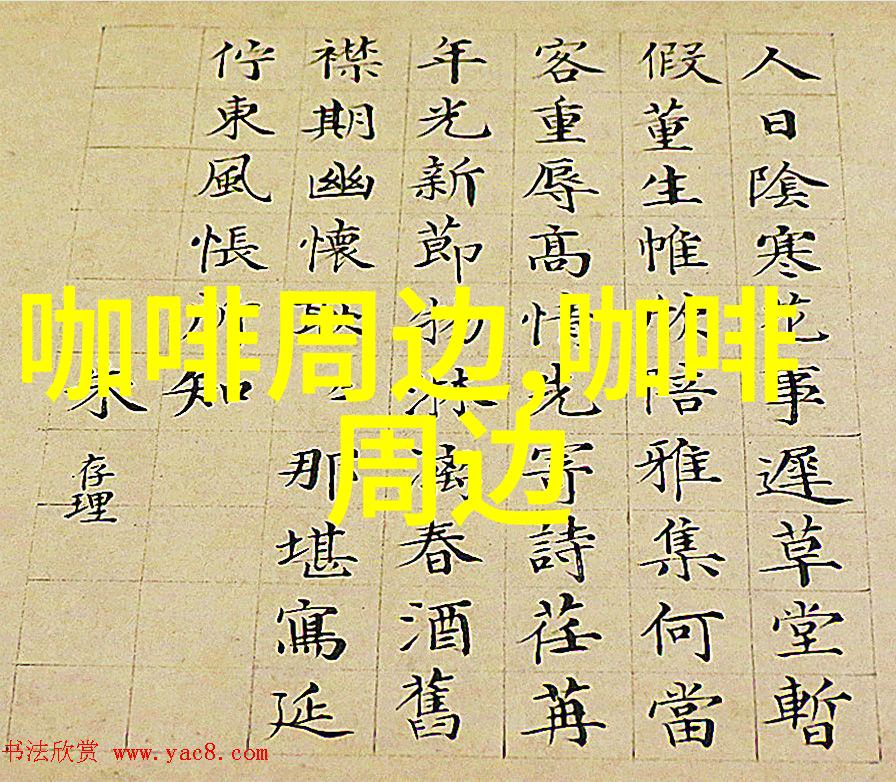 人日陰寒花事遲草堂暫
假董生帷欣陪雅集何當
客重辱高情先寄詩荏苒
年光新節物淋漓春酒舊
襟期幽懷那堪寫延
佇東風悵知
存理
咖啡周边,咖啡
周边
书法欣赏 www.yac8.com